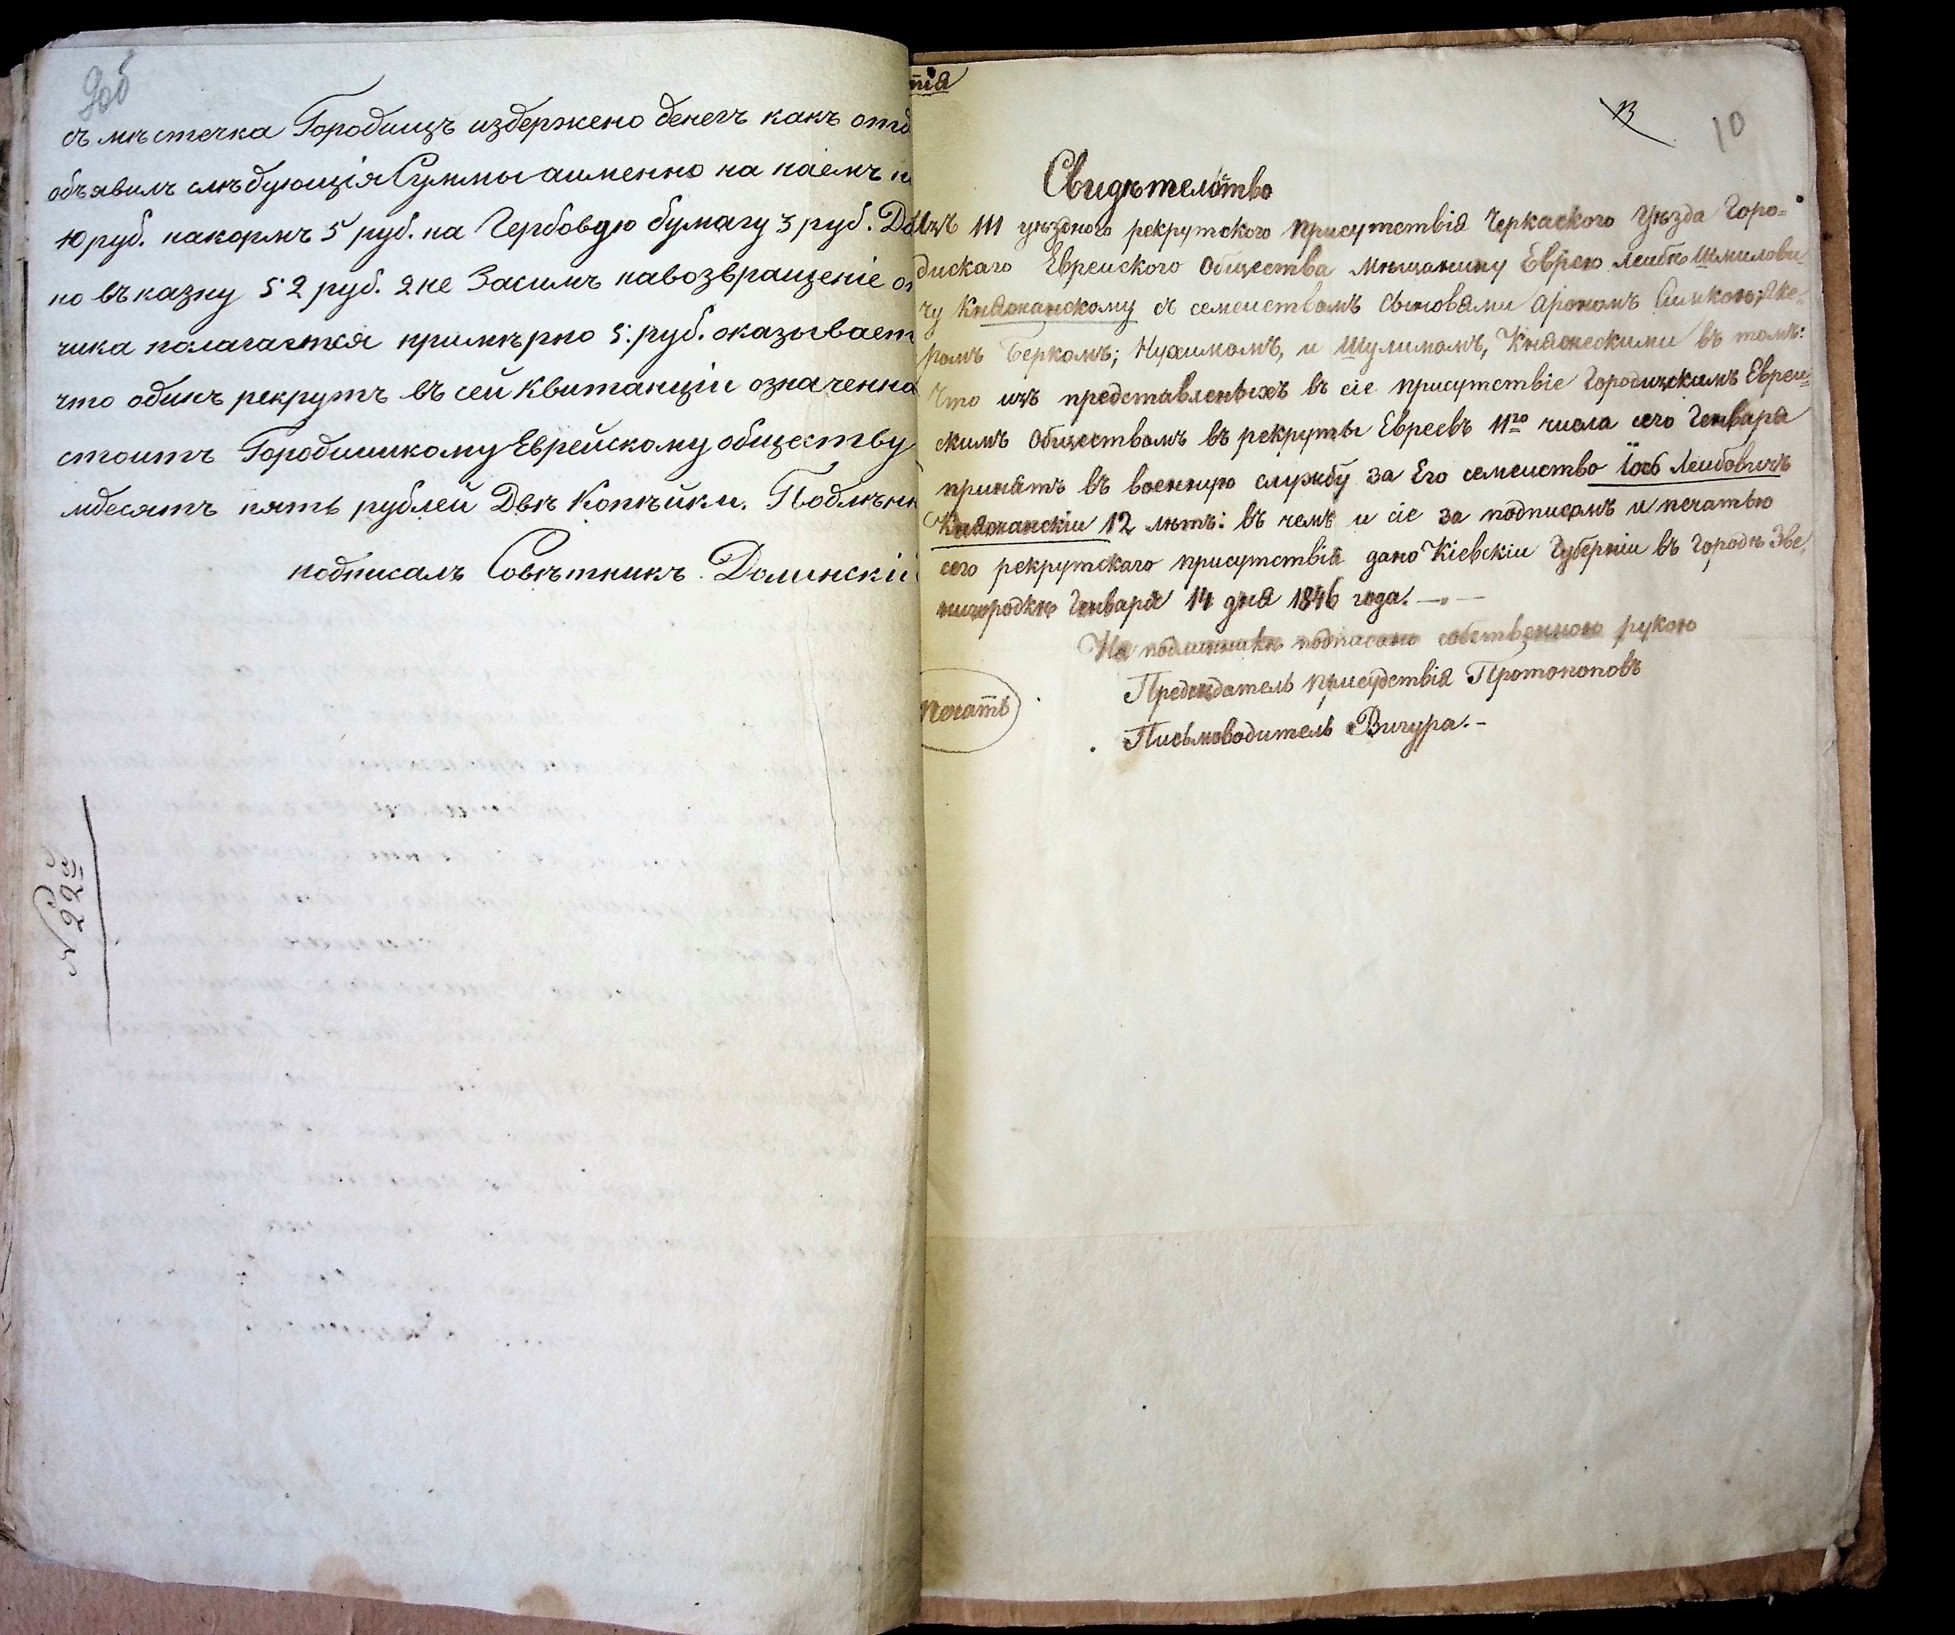 9об
съ мѣстечка Городищъ издержено денегъ какъ отд
объявилъ слѣдующія Суммы аименно на наемъ
10 руб. накормъ 5 руб. на Гербовую бумагу 3 руб. До
но въ казну 52 руб. 2 ке Засимъ навозвращеніе
чика полагается примѣрно 5: руб. оказывает
что одинъ рекрутъ въ сей Квитанціи означенно
стоитъ Городишкому Еврейскому обществу
мдесятъ пять рублей Двѣ Копѣйки. Подлѣнн
подписалъ Совѣтникъ Долинскій
№ 22
тія
13
10
Свидѣтелство
Изъ III уѣздного рекрутского присутствія Черкаского Уѣзда Горо=
дискаго Евреиского Общества мѣщанину Еврею Леибѣ Шмилови=
чу Княжанскому съ семеиствомъ сыновями Арономъ Симкою; Яке=
ромъ Беркомъ; Нухимомъ, и Шулимомъ, Княжескими въ томъ:
Что изъ представленыхъ въ сіе присутствіе Городискимъ Евреи=
скимъ Обществомъ въ рекруты Евреевъ 11го числа сего Генваря
принятъ въ военную службу за Его семеиство Іось Леибовичъ
Княжанскіи 12 лѣтъ: въ чемъ и сіе за подписомъ и печатью
сего рекрутскаго присутствія дано Кіевскіи Губерніи въ Городѣ Зве=
нигородкѣ Генваря 14 дня 1846 года.
На подлинникѣ подписано собственною рукою
Предсѣдатель присудствія Протопоповъ
Печать
Писмоводитель Вичура.-